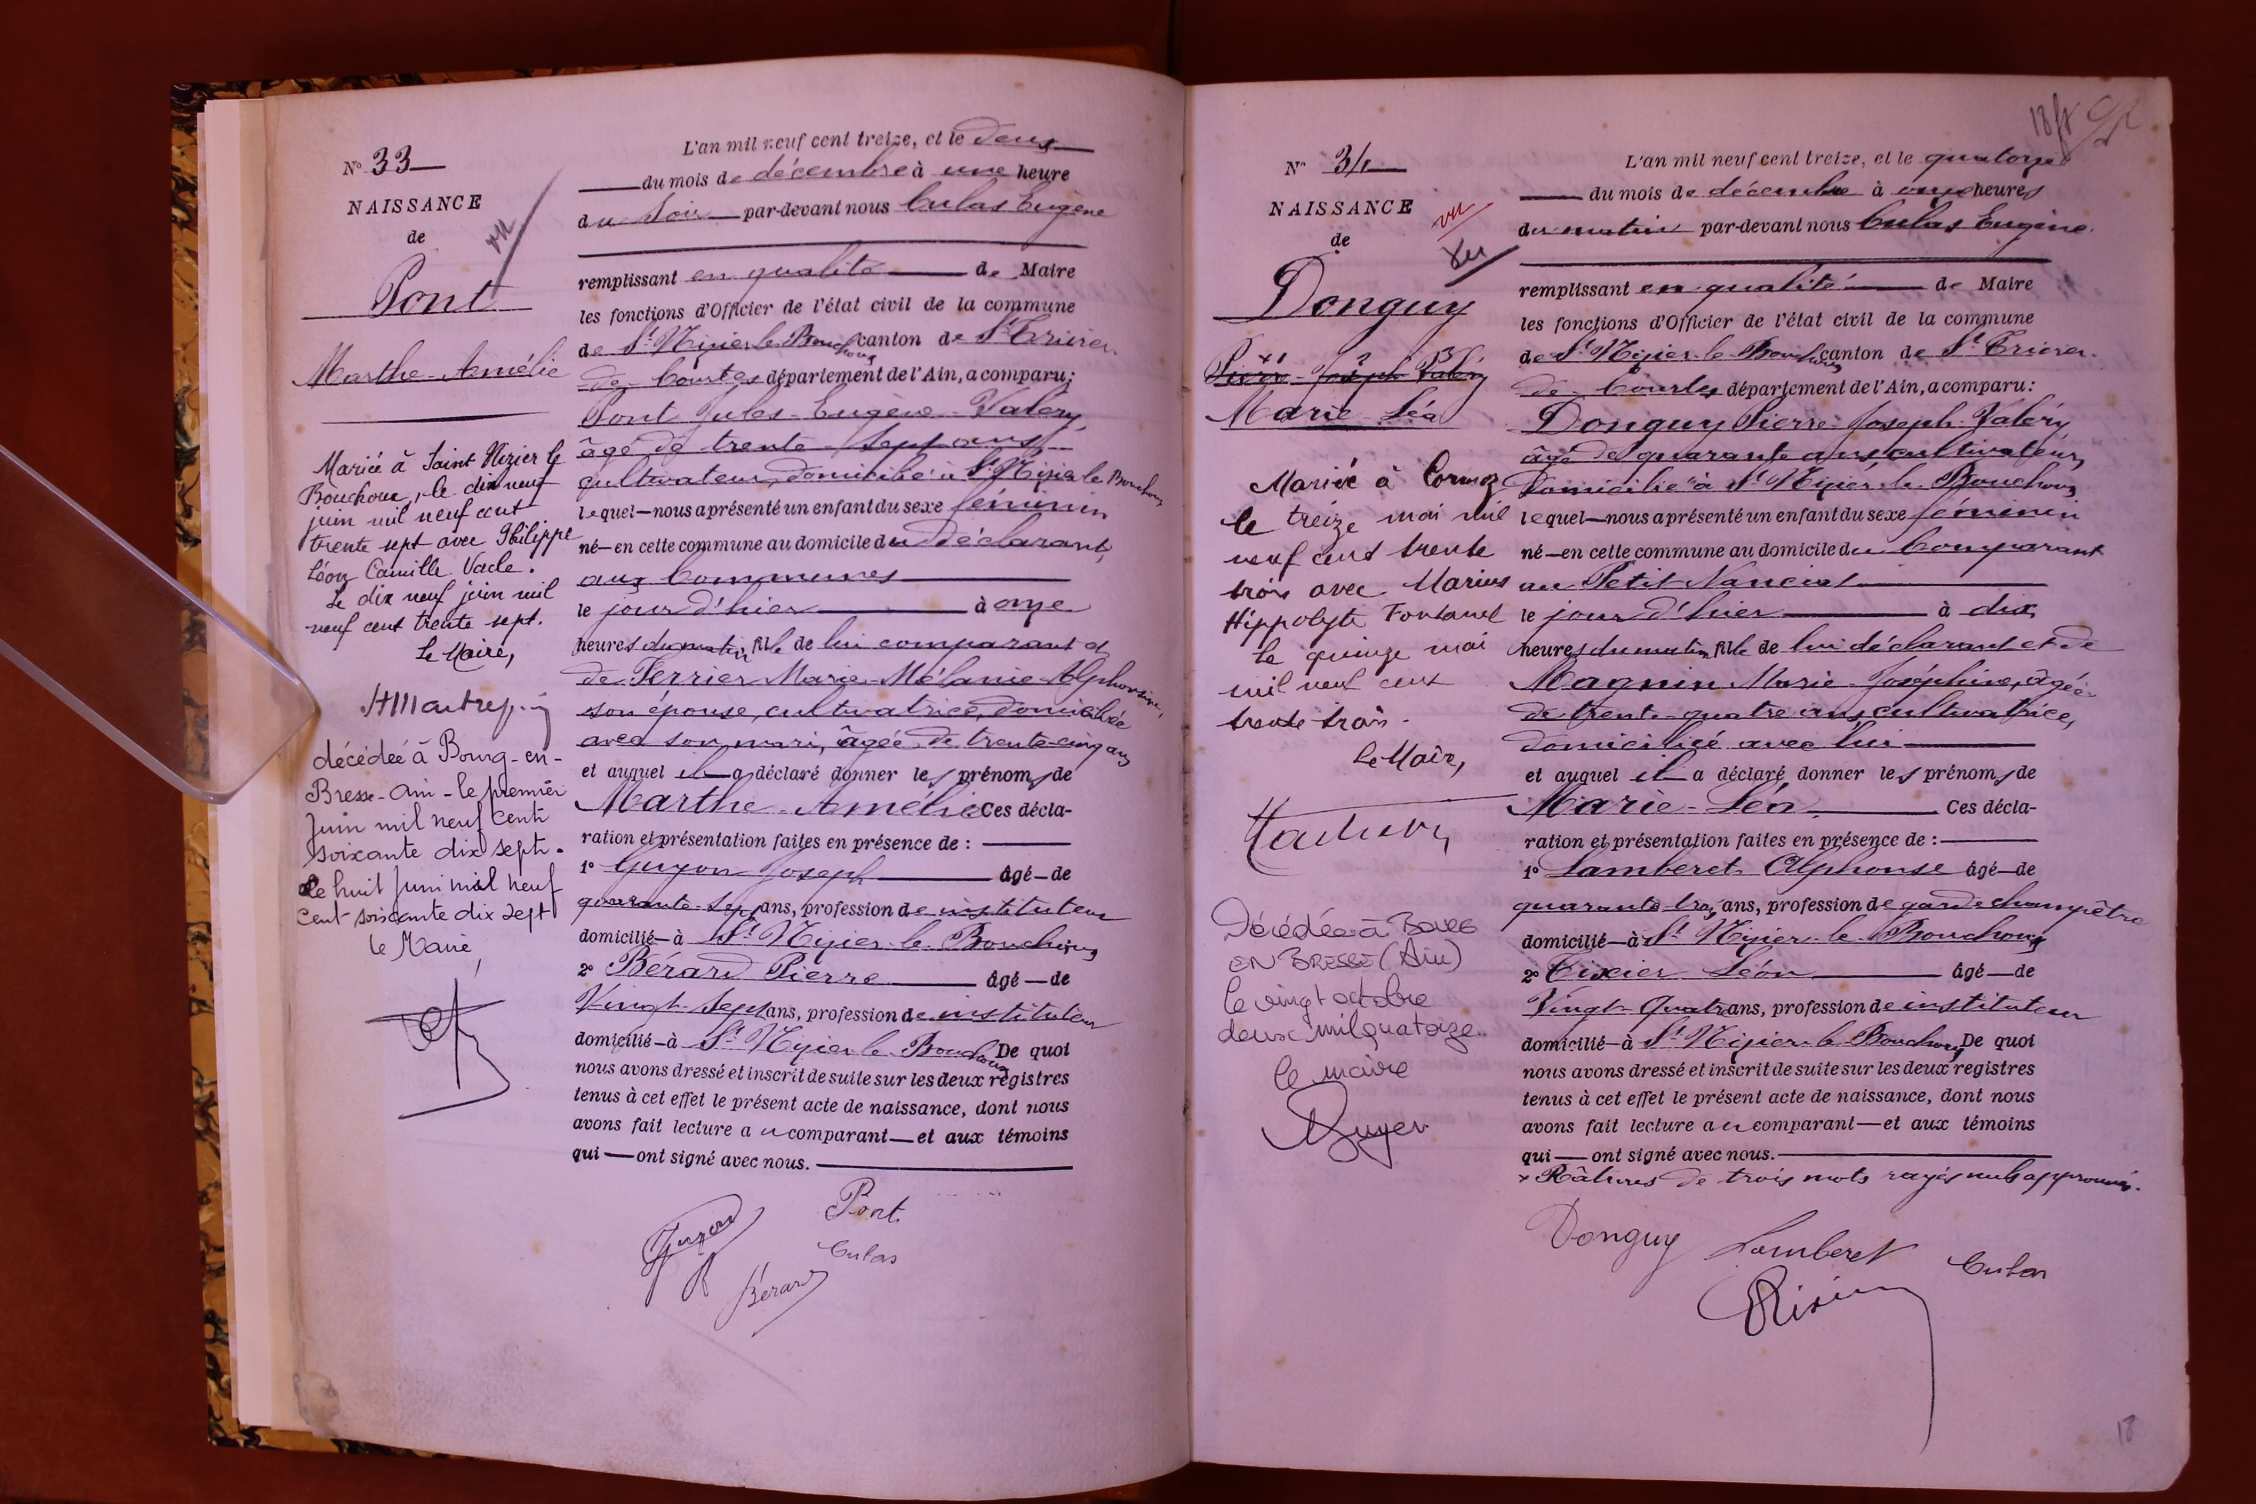 N° 33
NAISSANCE
de
vu
Pont
Marthe-Amélie
Mariée à Saint Nizier le
Bouchoux, le dix neuf
juin mil neuf cent
trente sept avec Philippe
Léon Camille Vacle.
Le dix neuf juin mil
neuf cent trente sept.
Le Maire,
décédée à Bourg-en-
Bresse-Ain-le premier
Juin mil neuf cent
soixante dix sept.
Le huit Juin mil neuf
cent soixante dix sept
le Maire,
L'an mil neuf cent treize, et le deux
du mois de décembre à une heure
du soir par-devant nous Culas Eugène
remplissant en qualité de Maire
les fonctions d'Officier de l'état civil de la commune
de St Nizier-le-Bouchoux canton de St Trivier
de Courtes département de l'Ain, a comparu:
Pont Jules-Eugène-Valéry,
âgé de trente-sept ans,
cultivateur, domicilié à St Nizier le Bouchoux
lequel nous a présenté un enfant du sexe féminin
né en cette commune au domicile du déclarant,
aux Communes
le jour d'hier à onze
heures du matin fille de lui comparant et
de Ferrier Marie-Mélanie-Alphonsine,
son épouse, cultivatrice, domiciliée
avec son mari, âgée de trente-cinq ans
et auquel il a déclaré donner les prénoms de
Marthe-Amélie Ces décla-
ration et présentation faites en présence de :
1° Guyon Joseph âgé de
quarante-sept ans, profession de instituteur
domicilié à St Nizier-le-Bouchoux
2° Bérard Pierre âgé de
Vingt-sept ans, profession de instituteur
domicilié à St Nizier-le-Bouchoux De quoi
nous avons dressé et inscrit de suite sur les deux registres
tenus à cet effet le présent acte de naissance, dont nous
avons fait lecture au comparant et aux témoins
qui ont signé avec nous.
Pont
Guyon
Culas
Bérard
N° 34
NAISSANCE
de
vu
Vu
Donguy
Pierre-Joseph-Valéry
Marie-Léa
Mariée à Cormoz
le treize mai mil
neuf cent trente
trois avec Marius
Hippolyte Fontanel
Le quinze mai
mil neuf cent
trente-trois.
Le Maire,
Décédée à BOURG
EN BRESSE (Ain)
le vingt octobre
deux mil quatorze.
le maire
18
L'an mil neuf cent treize, et le quatorze
du mois de décembre à onze heures
du matin par-devant nous Culas Eugène
remplissant en qualité de Maire
les fonctions d'Officier de l'état civil de la commune
de St Nizier-le-Bouchoux canton de St Trivier
de Courtes département de l'Ain, a comparu:
Donguy Pierre-Joseph-Valéry
âgé de quarante ans, cultivateur,
domicilié à St Nizier-le-Bouchoux
lequel nous a présenté un enfant du sexe féminin
né en cette commune au domicile du Comparant
au Petit Nanciat
le jour d'hier à dix
heures du matin fille de lui déclarant et de
Magnin Marie-Joséphine, âgée
de trente-quatre ans, cultivatrice,
domiciliée avec lui
et auquel il a déclaré donner les prénoms de
Marie-Léa Ces décla-
ration et présentation faites en présence de :
1° Lamberet Alphonse âgé de
quarante-trois ans, profession de garde champêtre
domicilié à St Nizier-le-Bouchoux
2° Tixier Léon âgé de
Vingt-Quatre ans, profession de instituteur
domicilié à St Nizier-le-Bouchoux De quoi
nous avons dressé et inscrit de suite sur les deux registres
tenus à cet effet le présent acte de naissance, dont nous
avons fait lecture au comparant et aux témoins
qui ont signé avec nous.
× Râtures de trois mots rayés nuls approuvés.
Donguy Lamberet Culas
18